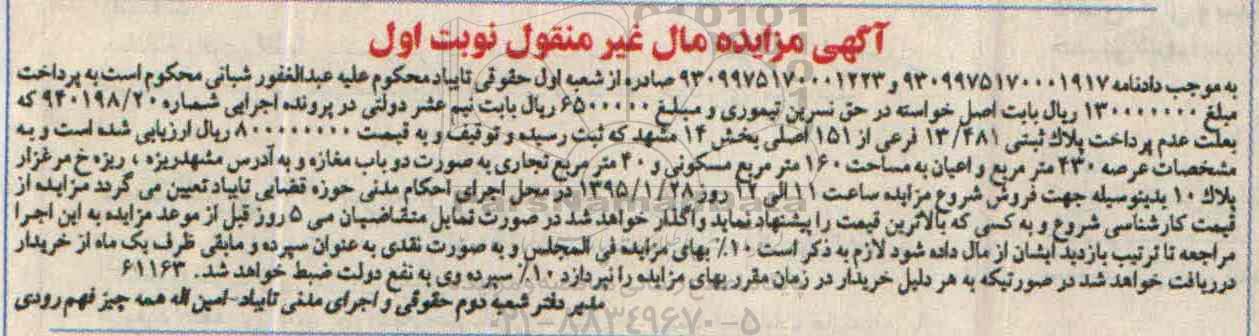 آگهی مزایده مال غیر منقول نوبت اول
به موجب دادنامه ۹۳۰۹۹۷۵۱۷۰۰۰۱۹۱۷ و ۹۳۰۹۹۷۵۱۷۰۰۰۱۲۲۳ صادره از شعبه اول حقوقی تایباد محکوم علیه عبدالغفور شبانی محکوم است به پرداخت
مبلغ ۱۳۰۰۰۰۰۰۰ ریال بابت اصل خواسته در حق نسرین تیموری و مبلغ ۶۵۰۰۰۰۰ ریال بابت نیم عشر دولتی در پرونده اجرایی شماره ۹۴۰۱۹۸/۲۰ که
بعلت عدم پرداخت پلاک ثبتی ۱۳/۴۸۱ فرعی از ۱۵۱ اصلی بخش ۱۴ مشهد که ثبت رسیده و توقیف و به قیمت ۸۰۰۰۰۰۰۰۰ ریال ارزیابی شده است و به
مشخصات عرصه ۴۳۰ متر مربع و اعیان به مساحت ۱۶۰ متر مربع مسکونی و ۴۰ متر مربع تجاری به صورت دو باب مغازه و به آدرس مشهدریزه ، ریزه خ مرغزار
پلاک ۱۰ بدینوسیله جهت فروش شروع مزایده ساعت ۱۱ الی ۱۲ روز ۱۳۹۵/۱/۲۸ در محل اجرای احکام مدنی حوزه قضایی تایباد تعیین می گردد مزایده از
قیمت کارشناسی شروع و به کسی که بالاترین قیمت را پیشنهاد نماید واگذار خواهد شد در صورت تمایل متقاضیان می ۵ روز قبل از موعد مزایده به این اجرا
مراجعه تا ترتیب بازدید ایشان از مال داده شود لازم به ذکر است ۱۰٪ بهای مزایده فی المجلس و به صورت نقدی به عنوان سپرده و مابقی ظرف یک ماه از خریدار
دریافت خواهد شد در صورتیکه به هر دلیل خریدار در زمان مقرر بهای مزایده را نپردازد ۱۰٪ سپرده وی به نفع دولت ضبط خواهد شد. ۶۱۱۶۳
مدیر دفتر شعبه دوم حقوقی و اجرای مدنی تایباد-امین اله همه چیز فهم رودی
۰۲۱-۸۸۳۴۹۶۷۰-۵